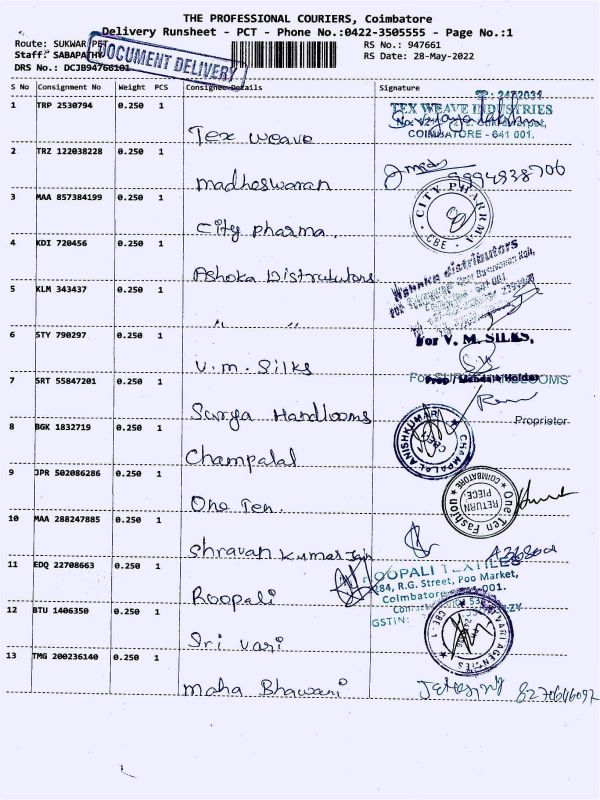 THE PROFESSIONAL COURIERS, Coimbatore
Delivery Runsheet - PCT - Phone No.:0422-3505555 - Page No.:1
Route: SUKWAR PET
RS No.: 947661
Staff: SABAPATHY
RS Date: 28-May-2022
DRS No.: DCJB94766101
DOCUMENT DELIVERY
S No Consignment No Weight PCS Consignee Details Signature
1 TRP 2530794 0.250 1 Tex weave
TEX WEAVE INDUSTRIES
COIMBATORE - 641 001.
2 TRZ 122038228 0.250 1 madheswaran
3 MAA 857384199 0.250 1 City pharma.
CITY PHARMA
CBE
4 KDI 720456 0.250 1 Ashoka Distrututors
Ashoka distributors
5 KLM 343437 0.250 1 " "
6 STY 790297 0.250 1 V.m. Silks
For V. M. SILKS,
7 SRT 55847201 0.250 1 Surya Handlooms
Proprietor
8 BGK 1832719 0.250 1 Champalal
CHAMPALAL ANISHKUMAR
9 JPR 502086286 0.250 1 One Ten.
One Ten Fashion
COIMBATORE
RETURN
PIECE
10 MAA 288247885 0.250 1 Shravan Kumar Jain
11 EDQ 22708663 0.250 1 Roopali
ROOPALI TEXTILES
84, R.G. Street, Poo Market,
GSTIN:
12 BTU 1406350 0.250 1 Sri vari
VARI AGENCIES
13 TMG 200236140 0.250 1 maha Bhawari
8270646097